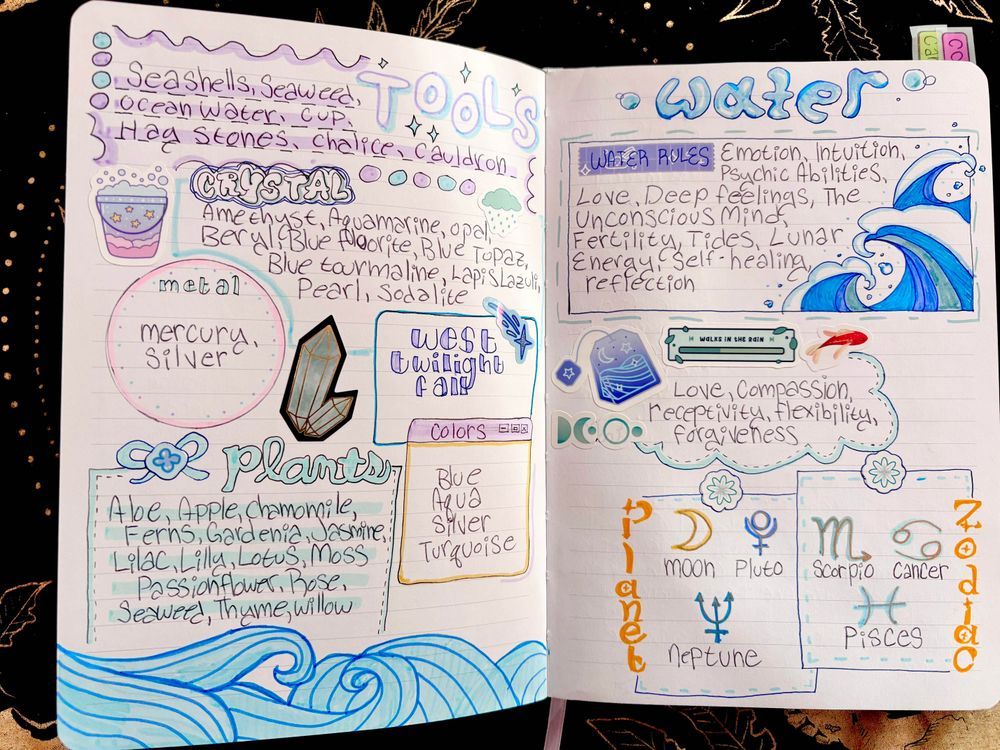 TOOLS
Seashells, Seaweed,
Ocean water, cup,
Hag Stones, chalice, Cauldron
CRYSTAL
Amethyst, Aquamarine, opal,
Beryl, Blue floorite, Blue Topaz,
Blue tourmaline, Lapis Lazuli,
Pearl, Sodalite
metal
mercury,
Silver
west
twilight
fall
Colors
Blue
Aqua
Silver
Turquoise
plants
Aloe, Apple, chamomile,
Ferns, Gardenia, Jasmine,
Lilac, Lilly, Lotus, Moss
Passionflower, Rose,
Seaweed, Thyme, willow
water
WATER RULES Emotion, Intuition,
Psychic Abilities,
Love, Deep feelings, The
Unconscious Mind,
Fertility, Tides, Lunar
Energy, Self-healing,
reflection
WALKS IN THE RAIN
Love, Compassion,
receptivity, flexibility,
forgiveness
Planet
moon Pluto
Neptune
Zodiac
Scorpio Cancer
Pisces